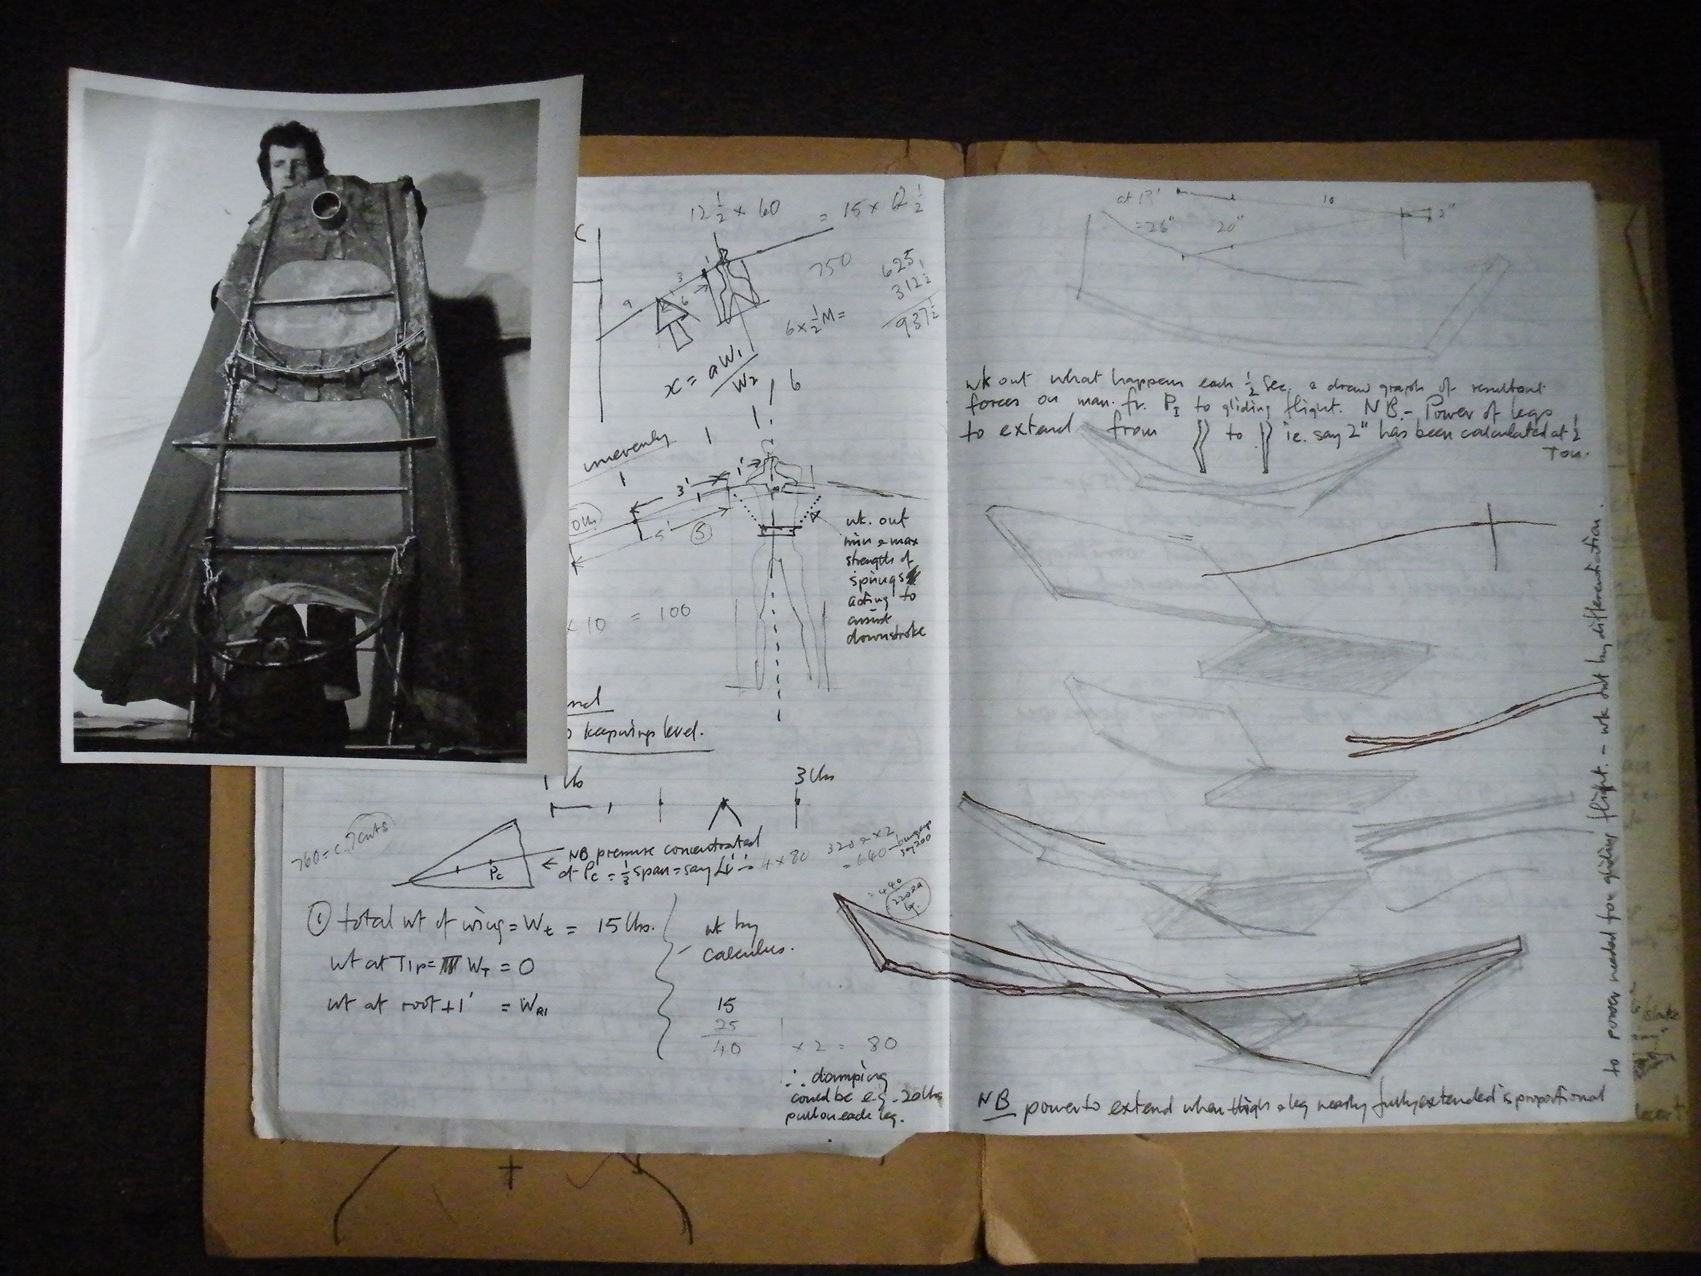 12 1/2 x 60 = 15 x
750
625
312 1/2
937 1/2
6 x 1/2 M =
9
3
6
x = aW1/W2
6
unevenly
1'
3'
5'
5
wk. out
min & max
strength of
springs
acting to
assist
downstroke
x 10 = 100
keep wings level.
1 lb
3 lbs
NB pressure concentrated
at Pc = 1/3 span = say 4' 4 x 80
Pc
x 2
= 640
= 440
① total wt of wing = Wt = 15 lbs.
wt at Tip = WT = 0
wt at root + 1' = WR1
wk by
calculus.
15
25
40 x 2 = 80
∴ damping
could be e.g. 20 lbs
pull on each leg.
at 13'
= 26"
20"
10
2"
wk out what happens each 1/2 sec, & draw graph of resultant
forces on man. fr. P1 to gliding flight. NB.- Power of legs
to extend from to ie. say 2" has been calculated at 1/2
Ton.
NB power to extend when thigh & leg nearly fully extended is proportional
to power needed for gliding flight. - wk out by differentiation.